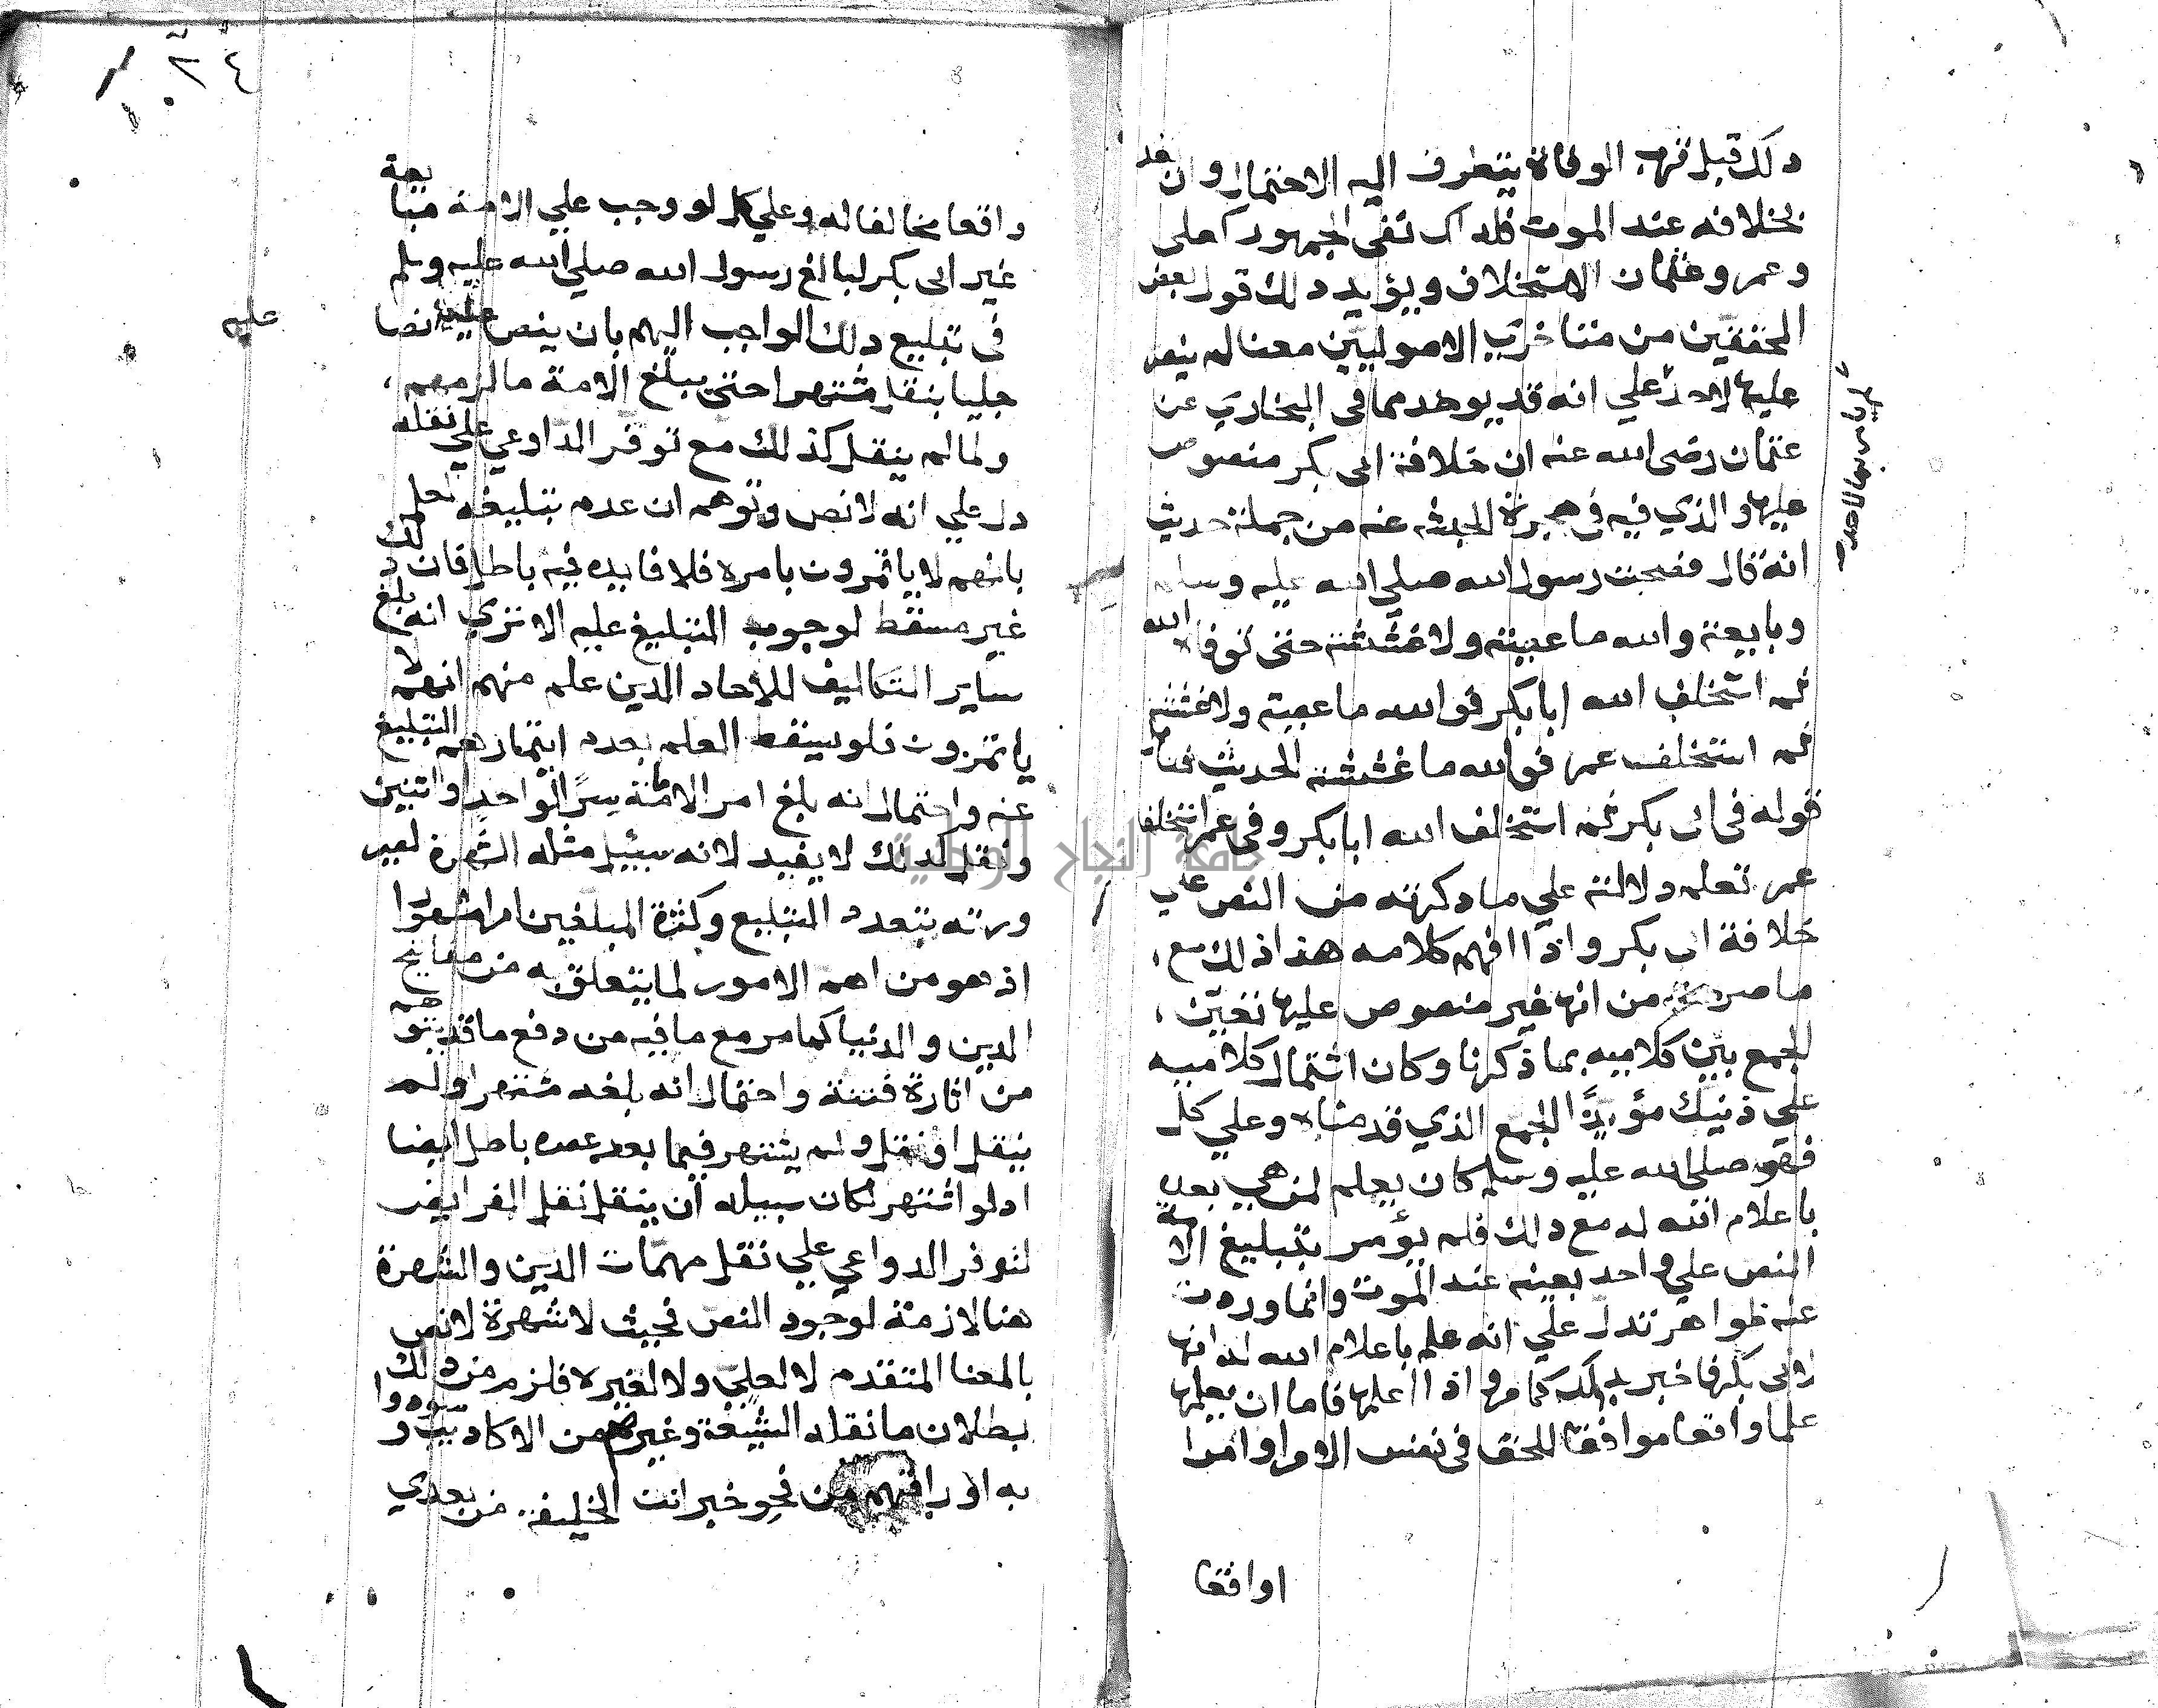 ذلك قبل قرب الوفاة يتطرق اليه الاحتمال وان بعد
بخلافه عند الموت فلذلك نفى الجمهور كعلى
وعمر وعثمان الاستخلاف ويؤيد ذلك قول بعض
المحققين من متاخرى الاصوليين معنا لم ينص
عليها لاحد علي انه قد يوخد مما في البخاري عن
عثمان رضى الله عنه ان خلافة ابى بكر منصوص
عليها والذي فيه في هجرة الحبشه عنه من جملة حديث
انه قال فصحبت رسول الله صلي الله عليه وسلم
وبايعته والله ما عصيته ولا غششته حتى توفاه الله
ثم استخلف الله ابا بكر فوالله ما عصيته ولا غششته
ثم استخلف عمر فوالله ما غششته الحديث فتامل
قوله في ابى بكر ثم استخلف الله ابا بكر وفي عمر استخلف
عمر تعلم دلالته علي ما ذكرته من النص علي
خلافة ابى بكر واذا افهم كلامه هذا ذلك مع
ما مر من انها غير منصوص عليها تعين
الجمع بين كلاميه بما ذكرنا وكان اشتمال كلاميه
علي ذنيك مؤيدًا الجمع الذي قدمناه وعلي كل
فهو صلي الله عليه وسلم كان يعلم لمن هي بعده
باعلام الله له مع ذلك فلم يؤمر بتبليغ الامة
النص علي واحد بعينه عند الموت وانما وردت
عنه ظواهر تدل علي انه علم باعلام الله له انها
لابى بكر فاخبر بذلك كما مر واذا اعلمها فاما ان يعلمها
علما واقعا موافقا للحق في نفس الامر او امرا
اوافقا
٢٤
واقعا مخالفا له وعلي كل لو وجب علي الامة مبايعة
غير ابى بكر لبالغ رسول الله صلي الله عليه وسلم
في تبليغ ذلك الواجب اليهم بان ينص عليه نصا
عليه
جليا ينقل مشتهرا حتى يبلغ الامة ما لزمهم
ولما لم ينقل كذلك مع توفر الدواعي علي نقله
دل علي انه لا نص وتوهم ان عدم تبليغه لعلمه
بانهم لا ياتمرون بامره فلا فايده فيه باطل فان ذلك
غير مسقط لوجوب التبليغ عليه الا ترى انه بلغ
ساير التكاليف للاحاد الذين علم منهم انهم لا
ياتمرون فلو يسقط العلم بعدم ايتمارهم التبليغ
عنه واحتمال انه بلغ امر الامامة سرًا لواحد واثنين
ونقل كذلك لا يفيد لانه سبيل مثله الشهرة لصير
ورته بتعدد التبليغ وكثرة المبلغين امرا مشهورا
اذ هو من اهم الامور لما يتعلق به من مصالح
الدين والدنيا كما مر مع ما فيه من دفع ما قد يتوهم
من اثارة فتنة واحتمال انه بلغه مشتهرا ولم
ينقل او نقل ولم يشتهر فيما بعد عصره باطل ايضا
اذ لو اشتهر لكان سبيله ان ينقل نقل الفرايض
لتوفر الدواعي علي نقل مهمات الدين والشهرة
هنا لازمة لوجود النص فحيث لا شهرة لا نص
بالمعنا المتقدم لا لعلي ولا لغيره فلزم من ذلك
بطلان ما نقله الشيعة وغيرهم من الاكاذيب وسودوا
به اوراقهم من نحو خبر انت الخليفة من بعدي